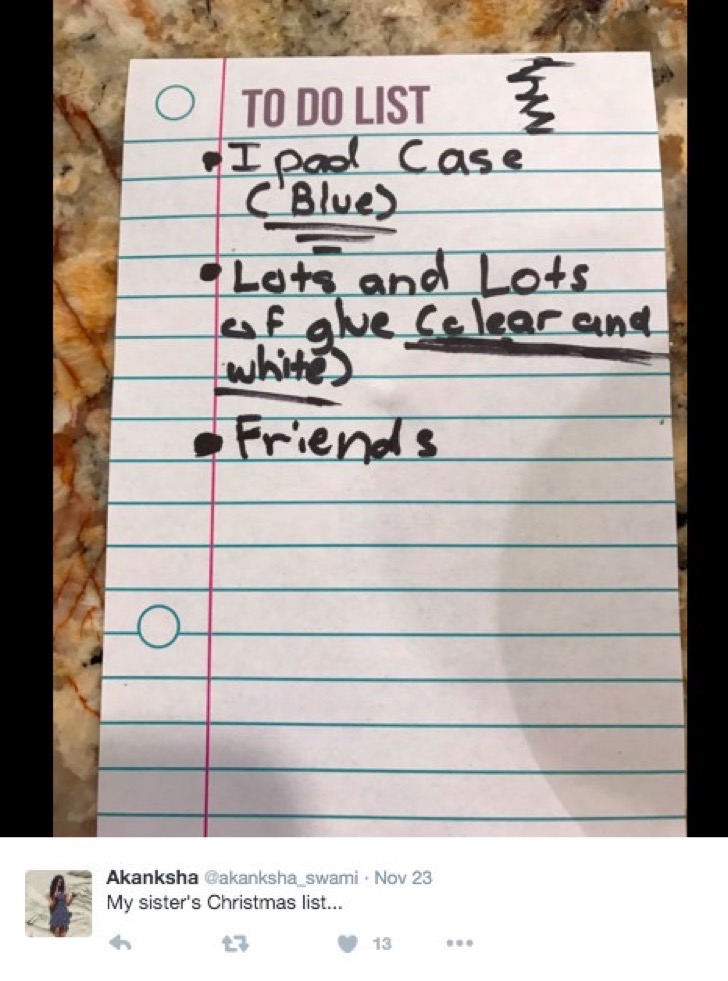 TO DO LIST
• Ipad Case
(Blue)
• Lots and Lots
of glue (clear and
white)
• Friends
Akanksha @akanksha_swami · Nov 23
My sister's Christmas list...
13